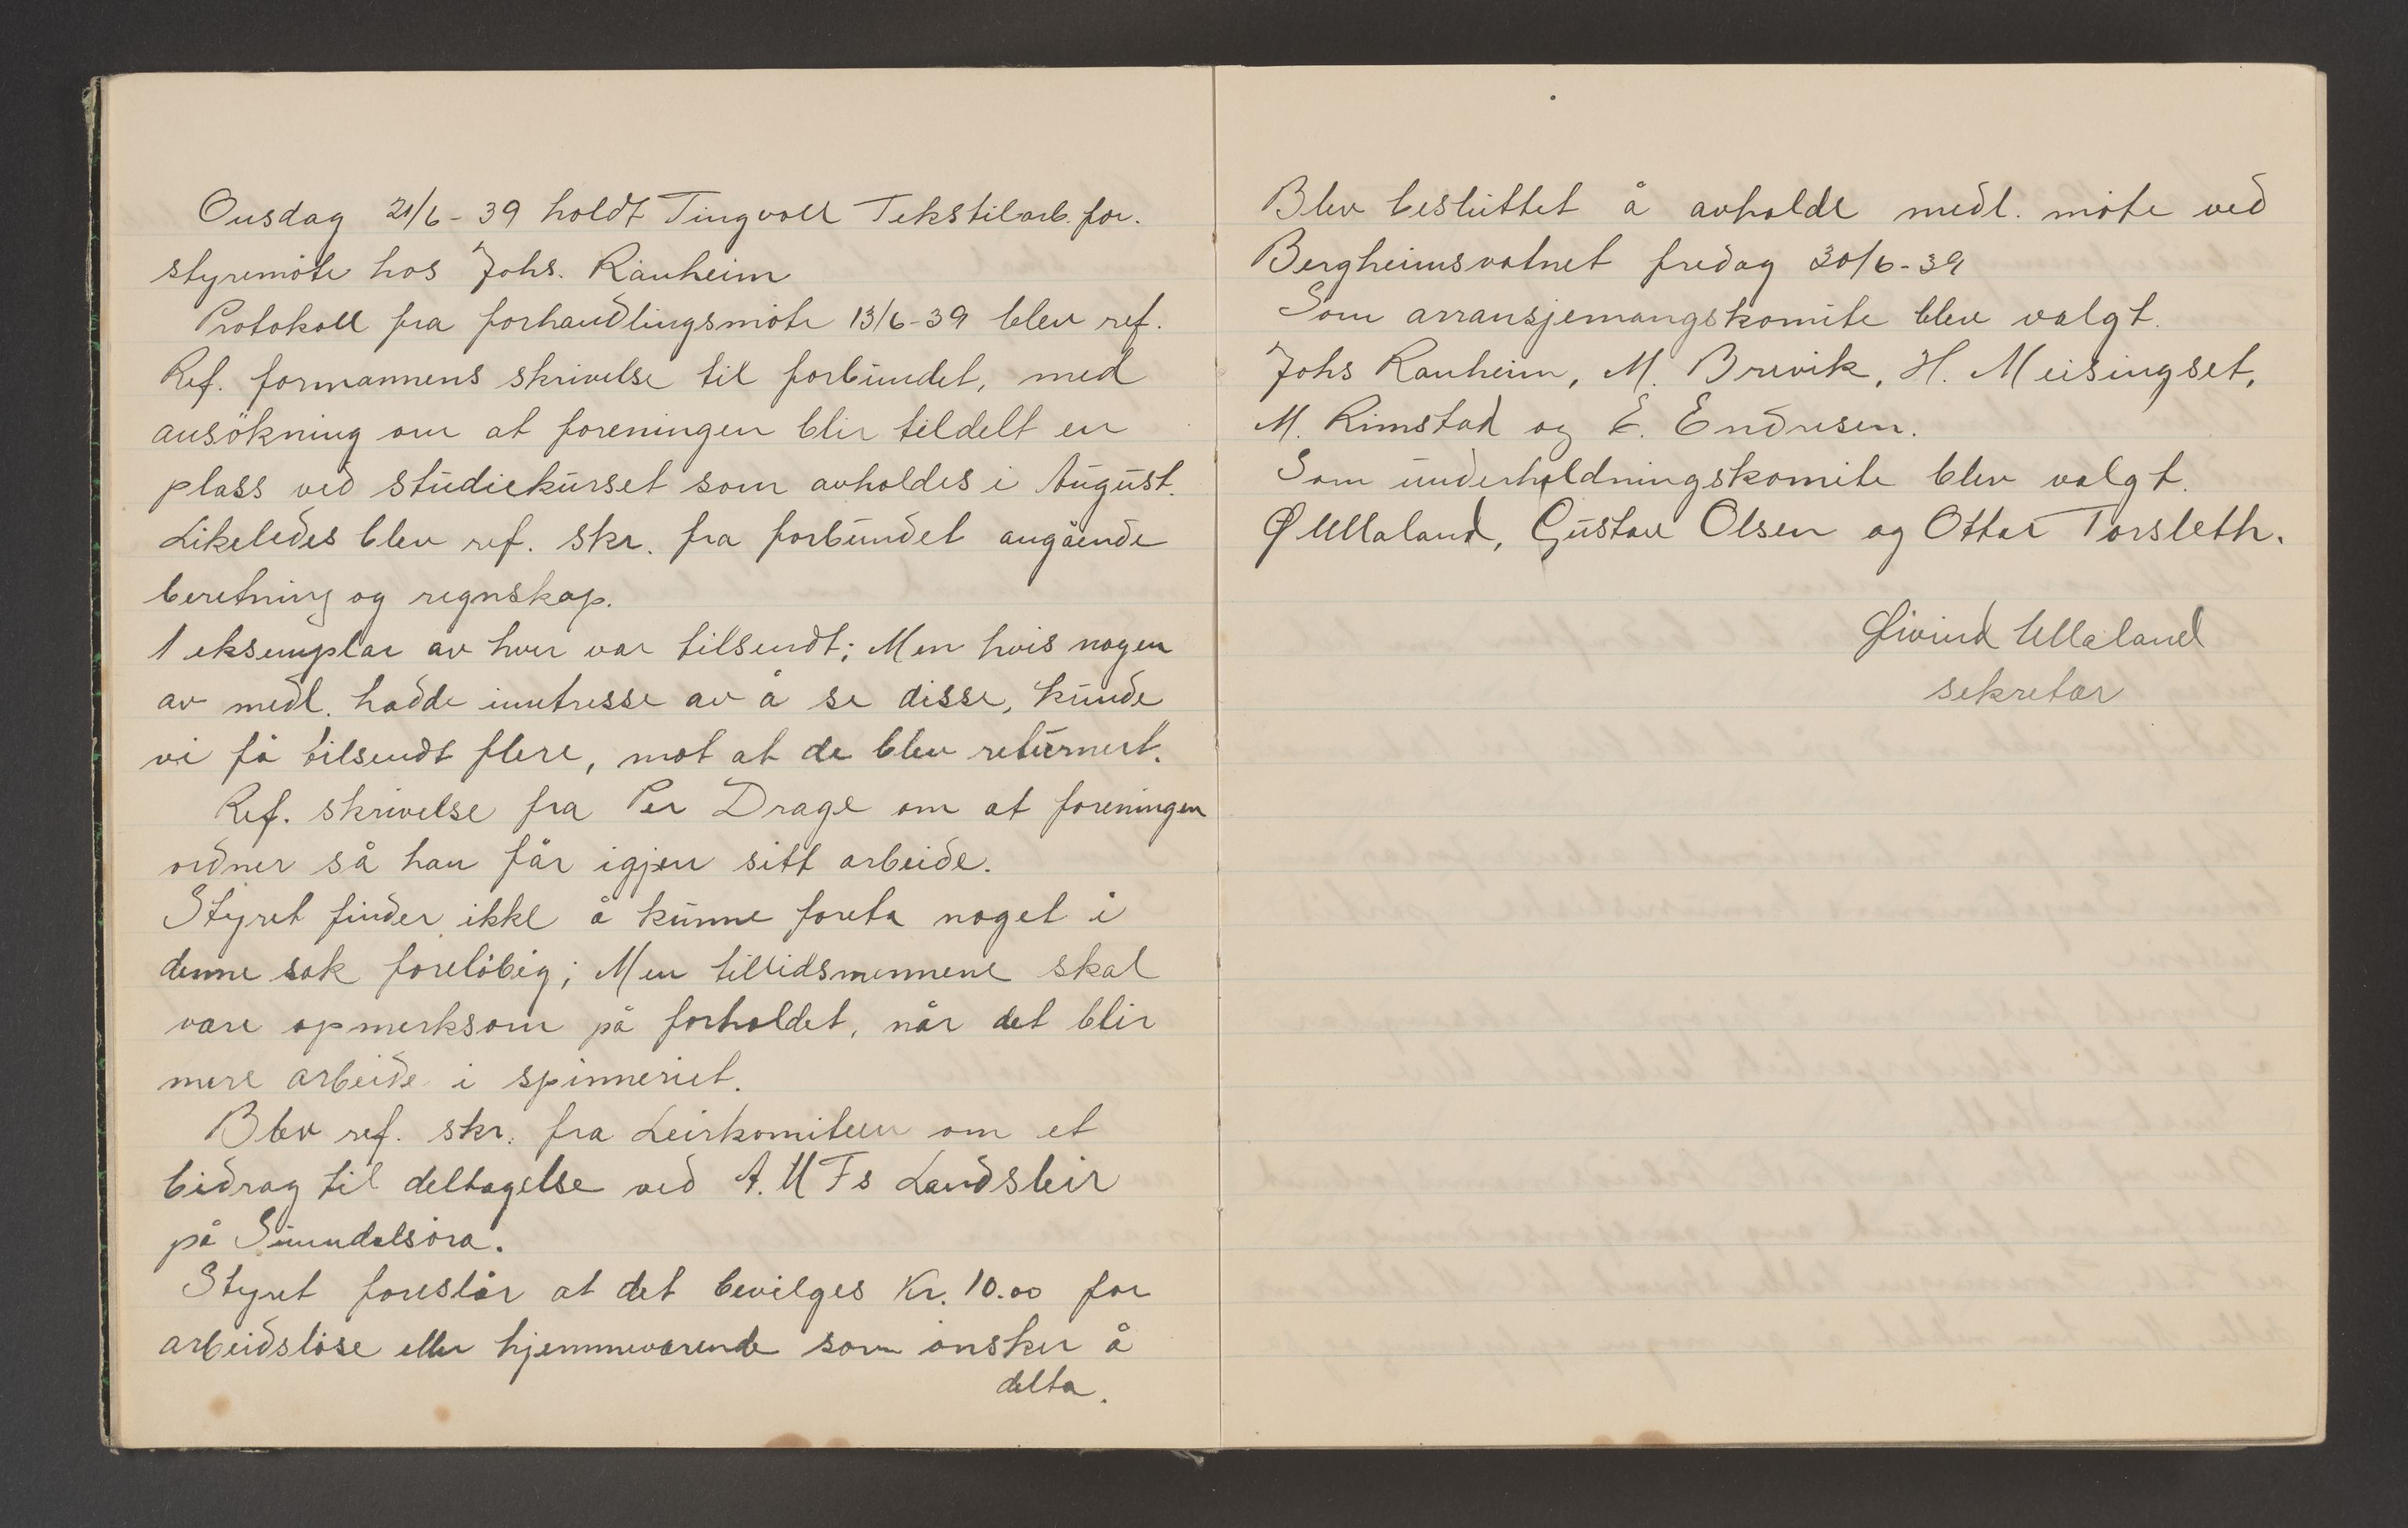 Onsdag 21/6-39 holdt Tingvoll Tekstilarb. for.
styremöte hos Johs. Ranheim
Protokoll fra forhandlingsmöte 13/6-39 blev ref.
Ref. formannens skrivelse til forbundet, med
ansökning om at foreningen blir tildelt en
plass ved studiekurset som avholdes i August.
Likeledes blev ref. skr. fra forbundet angående
beretning og regnskap.
1 eksemplar av hver var tilsendt; Men hvis nogen
av medl. hadde inntresse av å se disse, kunde
vi få tilsendt flere, mot at de blev returnert.
Ref. skrivelse fra Per Drage om at foreningen
ordner så han får igjen sitt arbeide.
Styret finder ikke å kunne foreta noget i
denne sak forelöbig; Men tillidsmennene skal
være opmerksom på forholdet, når det blir
mere arbeide i spinneriet.
Blev ref. skr. fra Leirkomiteen om et
bidrag til deltagelse ved A.U Fs Landsleir
på Sunndalsöra.
Styret foreslår at det bevilges Kr. 10.00 for
arbeidslöse eller hjemmeværende som önsker å
delta.
Blev besluttet å avholde medl. möte ved
Bergheimsvatnet fredag 30/6-39
Som arransjemangskomite blev valgt.
Johs Ranheim, M. Brevik, H. Meisingset,
M. Rimstad og E. Endresen.
Som underholdningskomite blev valgt.
Ø Ullaland, Gustav Olsen og Ottar Torsleth.
Øivind Ullaland
sekretær